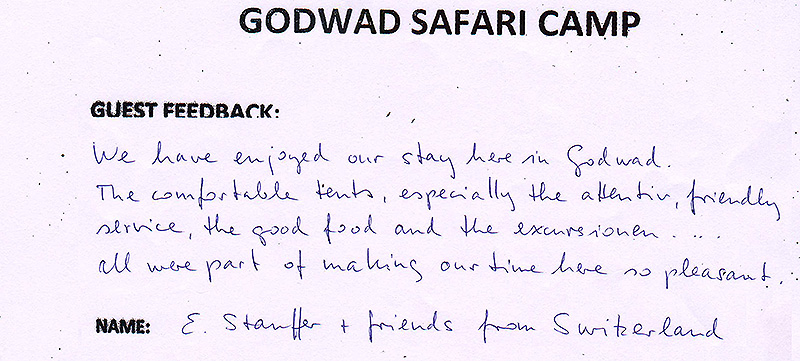 GODWAD SAFARI CAMP
GUEST FEEDBACK:
We have enjoyed our stay here in Godwad.
The comfortable tents, especially the attentiv, friendly
service, the good food and the excursionen ....
all were part of making our time here so pleasant.
NAME: E. Stauffer + friends from Switzerland